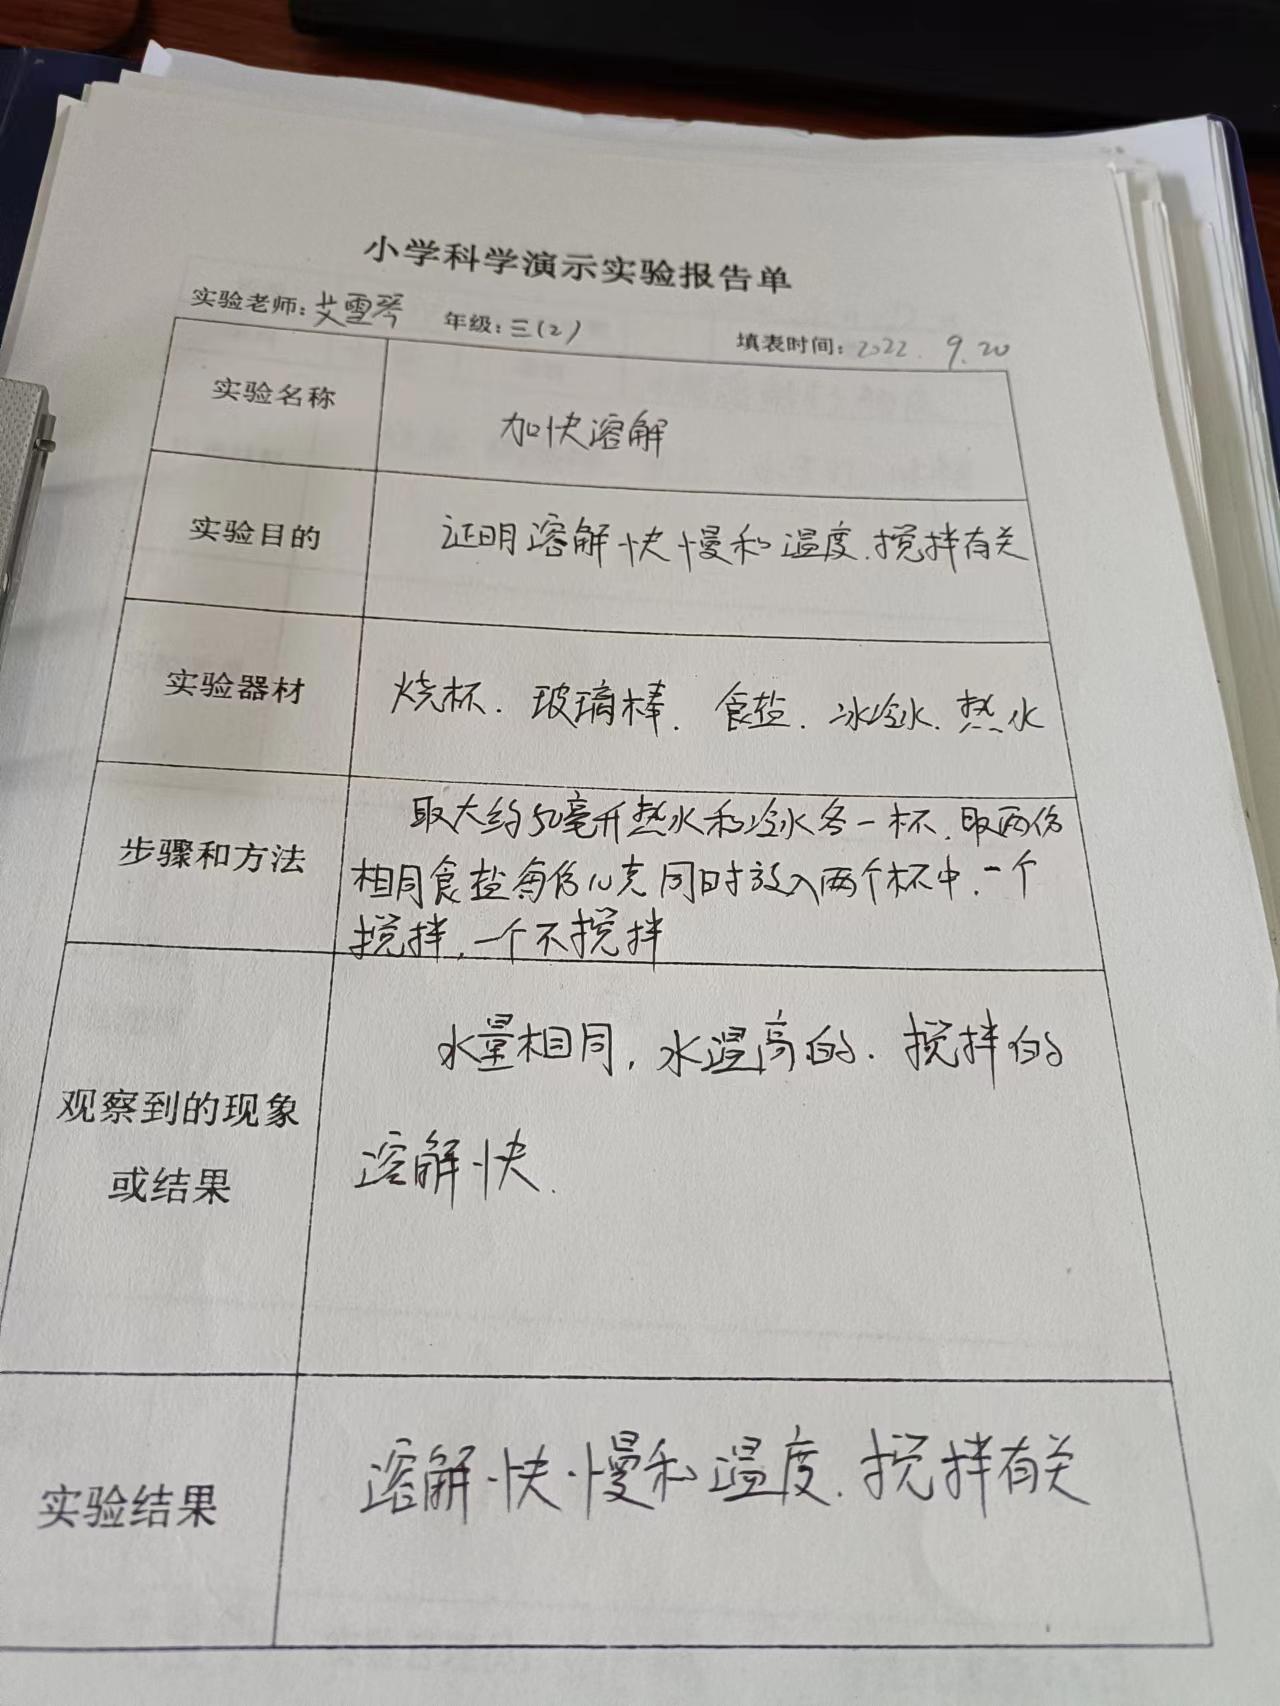 小学科学演示实验报告单
实验老师:艾雪琴 年级:三(2) 填表时间:2022.9.20
实验名称
加快溶解
实验目的
证明溶解快慢和温度.搅拌有关
实验器材
烧杯.玻璃棒.食盐.冰冷水.热水
步骤和方法
取大约50毫升热水和冷水各一杯.取两份
相同食盐每份10克同时放入两个杯中.一个
搅拌,一个不搅拌
观察到的现象
或结果
水量相同,水温高的.搅拌的
溶解快.
实验结果
溶解快慢和温度.搅拌有关